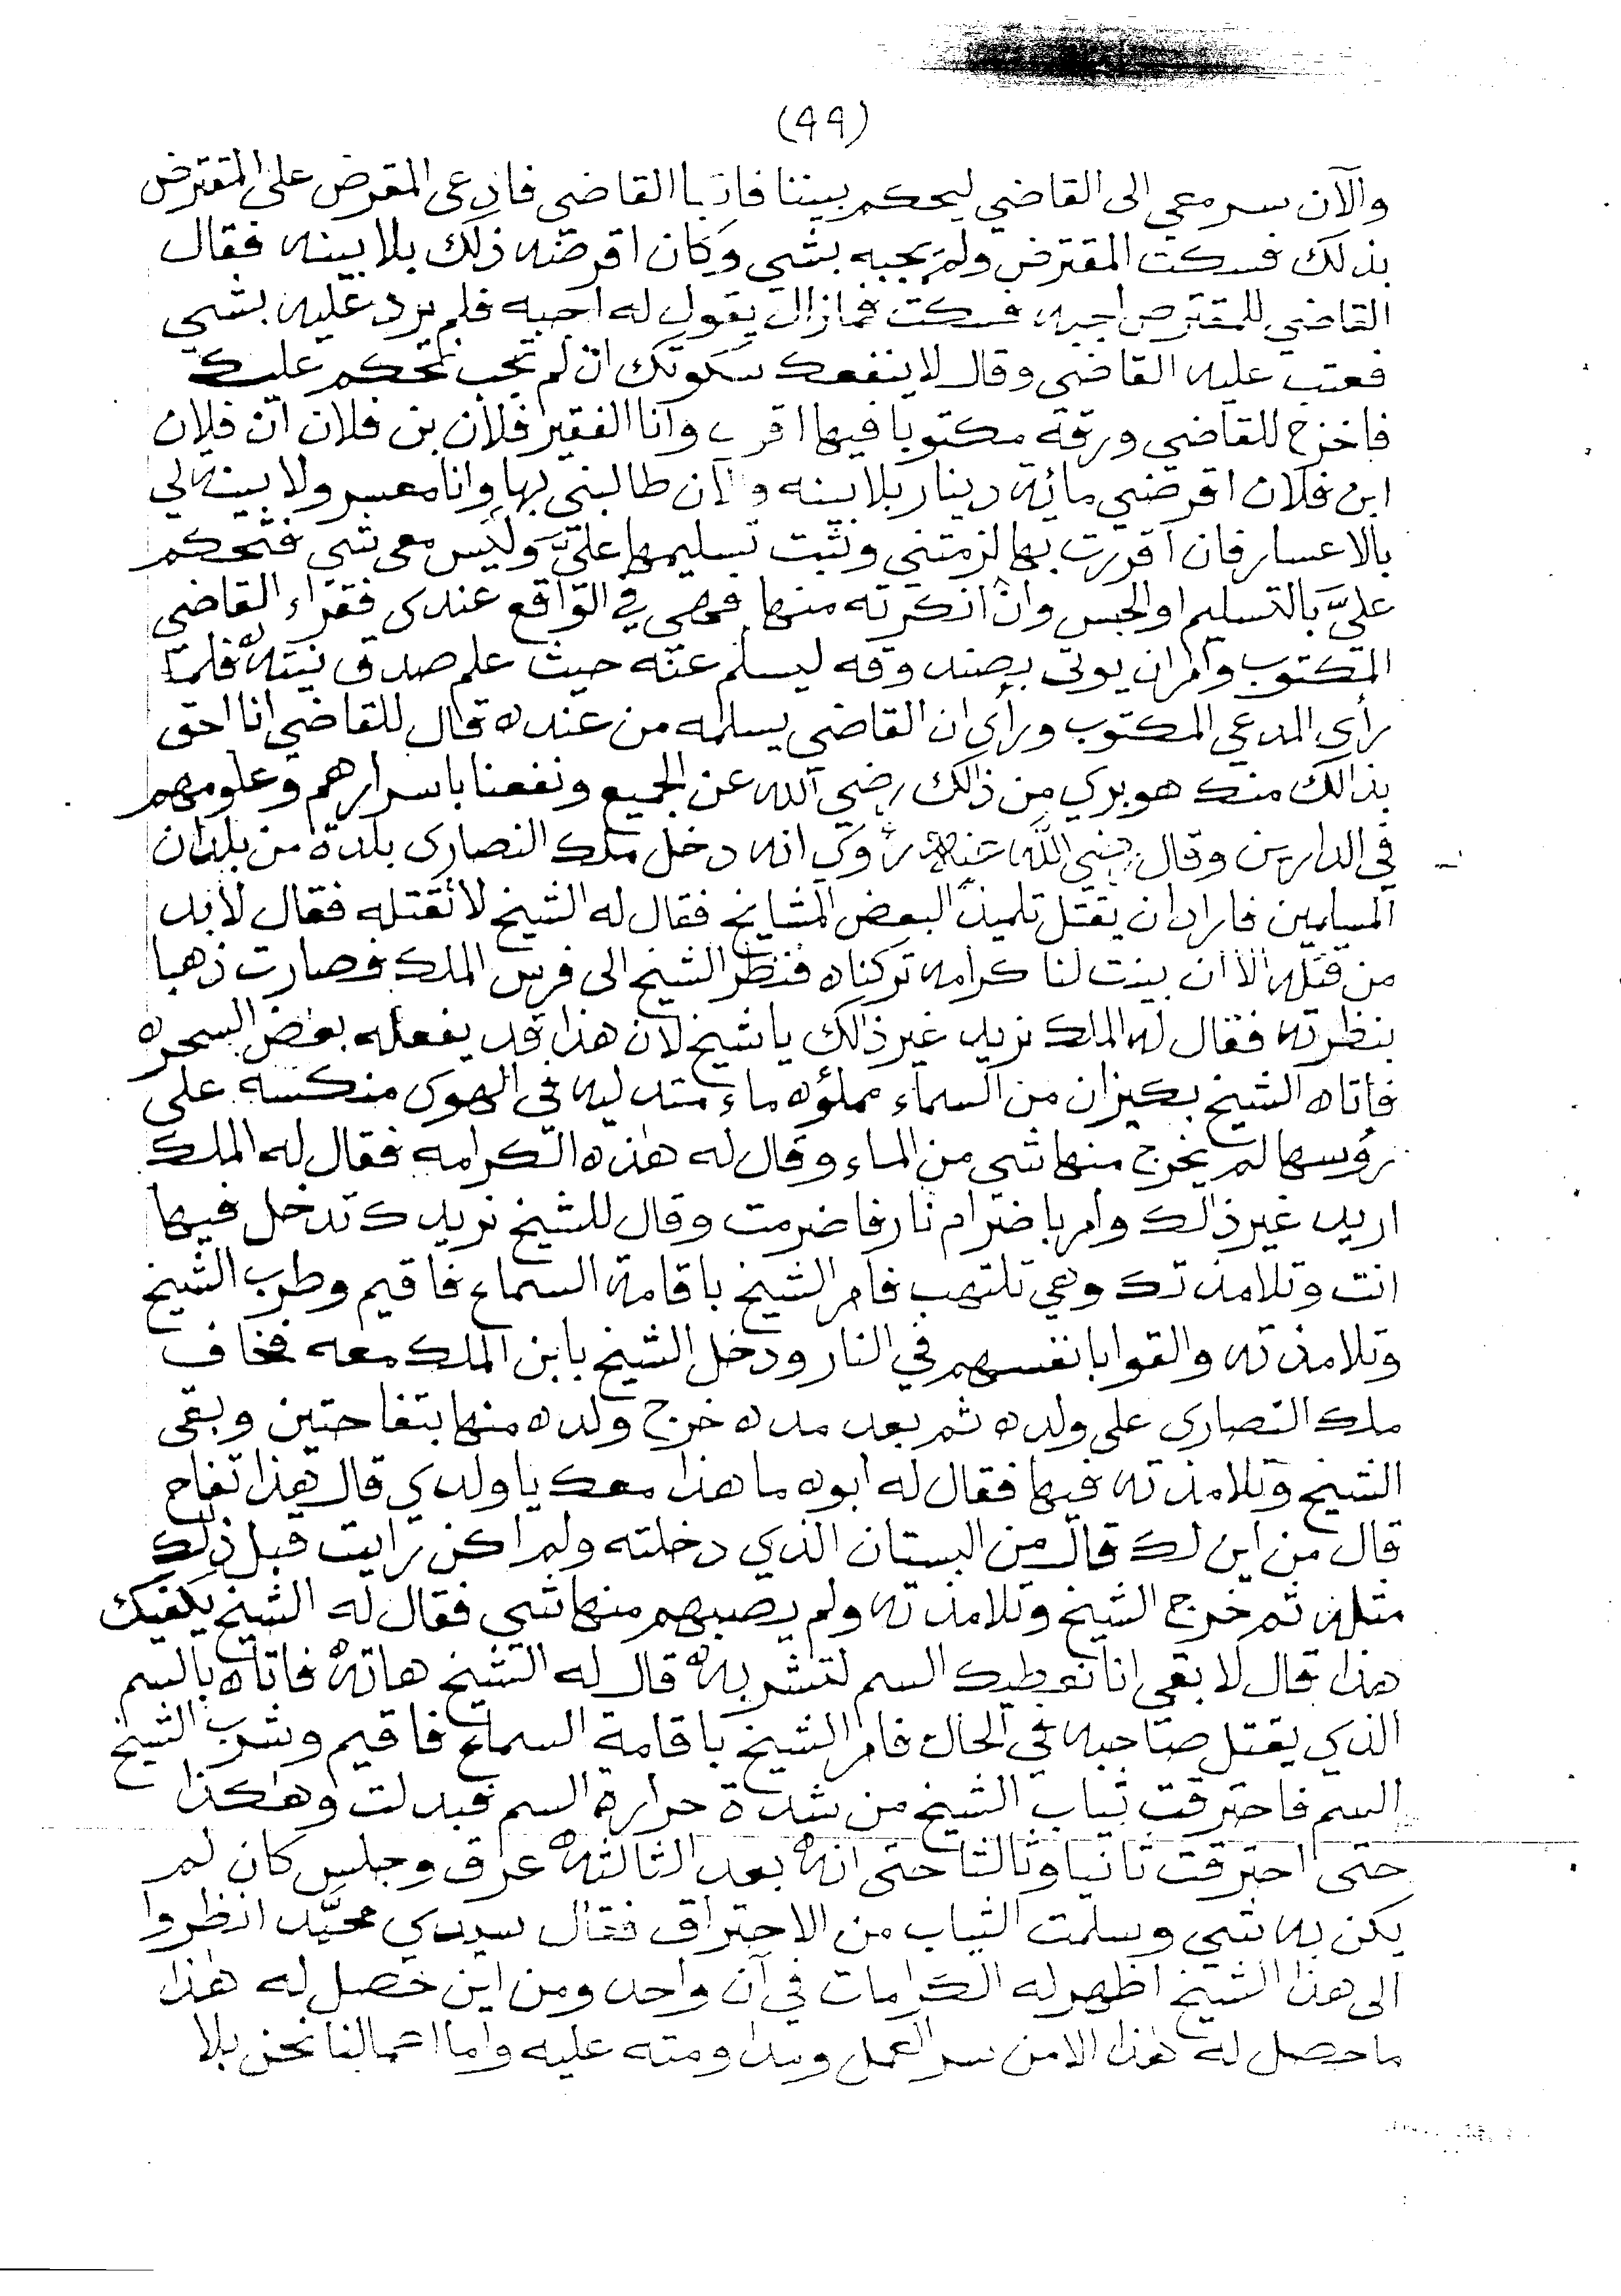 (٩٩)
والآن سر معي الى القاضي ليحكم بيننا فاتيا القاضي فادعى المقرض على المقترض
بذلك فسكت المقترض ولم يجبه بشي وكان اقرضه ذلك بلا بينه فقال
القاضي للمقترض اجبه فسكت فمازال يقول له اجبه فلم يرد عليه بشي
فعتب عليه القاضي وقال لا ينفعك سكوتك ان لم تجب نحكم عليك
فاخرج للقاضي ورقة مكتوبا فيها اقر وانا الفقير فلان بن فلان ان فلان
ابن فلان اقرضني مائة دينار بلا بينه والان طالبني بها وانا معسر ولا بينه لي
بالاعسار فان اقررت بها لزمتني وثبت تسليمها عليَّ وليس معي شي فتحكم
عليَّ بالتسليم او الحبس وان انكرته منها فهي في الواقع عندي فقراء القاضي
المكتوب وامر ان يوتى بصندوقه ليسلم عنه حيث علم صدق نيته فلما
رأى المدعي المكتوب ورأى ان القاضي يسلمه من عنده قال للقاضي انا احق
بذالك منك هو بري من ذالك رضي الله عن الجميع ونفعنا باسرارهم وعلومهم
في الدارين وقال رضي الله عنه روي انه دخل ملك النصارى بلدة من بلدان
المسلمين فاراد ان يقتل تلميذ البعض المشايخ فقال له الشيخ لا تقتله فقال لابد
من قتله الا ان بينت لنا كرامه تركناه فنظر الشيخ الى فرس الملك فصارت ذهبا
بنظرته فقال له الملك نريد غير ذالك يا شيخ لان هذا قد يفعله بعض السحره
فاتاه الشيخ بكيزان من السماء مملؤه ماء متدليه في الهوى منكسه على
رؤسها لم يخرج منها شي من الماء وقال له هاذه الكرامه فقال له الملك
اريد غير ذالك وامر باضرام نار فاضرمت وقال للشيخ نريدك تدخل فيها
انت وتلامذتك وهي تلتهب فامر الشيخ باقامة السماع فاقيم وطرب الشيخ
وتلامذته والقوا بانفسهم في النار ودخل الشيخ بابن الملك معه فخاف
ملك النصارى على ولده ثم بعد مده خرج ولده منها بتفاحتين وبقى
الشيخ وتلامذته فيها فقال له ابوه ما هذا معك يا ولدي قال هذا تفاح
قال من اين لك قال من البستان الذي دخلته ولم اكن رايت قبل ذلك
مثله ثم خرج الشيخ وتلامذته ولم يصبهم منها شي فقال له الشيخ يكفيك
هذا قال لا بقي انا نعطيك السم لتشربه قال له الشيخ هاته فاتاه بالسم
الذي يقتل صاحبه في الحال فامر الشيخ باقامة السماع فاقيم وشرب الشيخ
السم فاحترقت ثياب الشيخ من شدة حرارة السم فبدلت وهاكذا
حتى احترقت ثانيا وثالثا حتى انه بعد الثالثه عرق وجلس كان لم
يكن به شي وسلمت الثياب من الاحتراق فقال سيدي محمَّد انظروا
الى هذا الشيخ اظهر له الكرامات في آن واحد ومن اين حصل له هاذا
ما حصل له هاذا الا من سر العمل ومداومته عليه واما اعمالنا نحن بلا